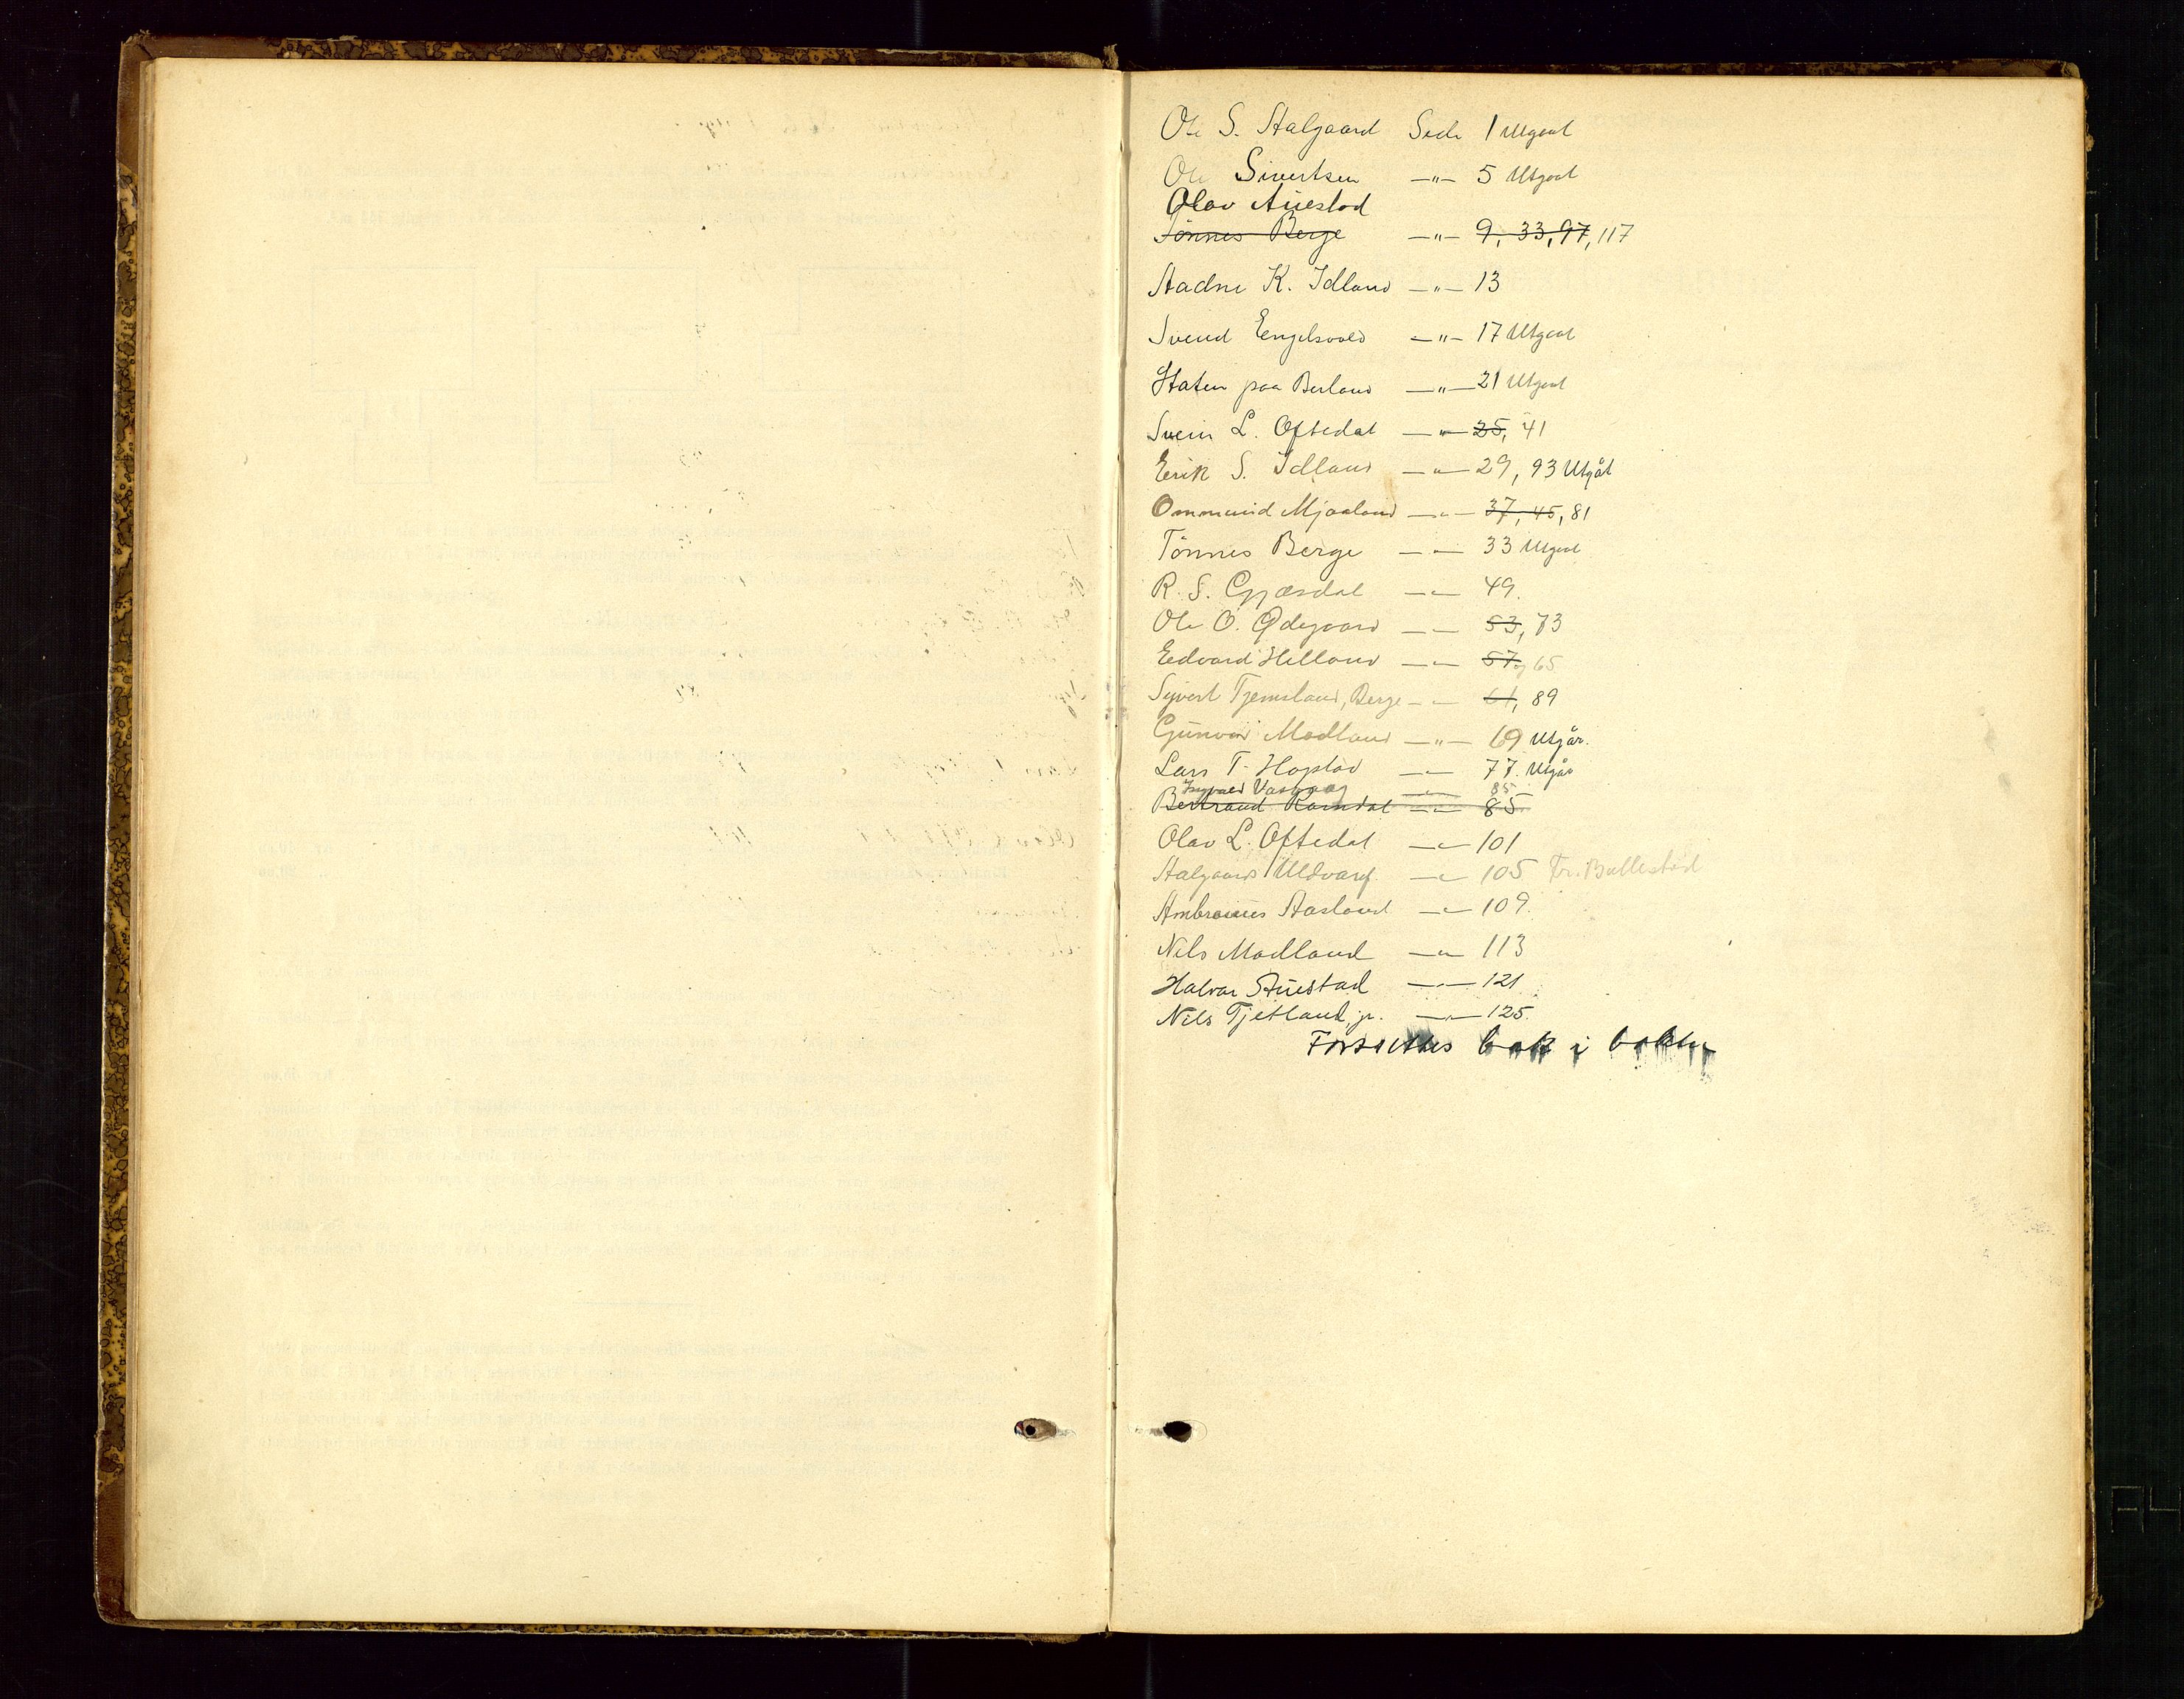 Ole S. Aalgaard Side 1 Utgaat
Ole Sivertsen —"— 5 Utgaat
Olav Auestad
Tönnes Berge —"— 9, 33, 97, 117
Aadne K. Idland —"— 13
Svend Eengelsvold —"— 17 Utgaat
Staten paa Berland —"— 21 Utgaat
Svein L. Oftedal —"— 25, 41
Eerik S. Idland —"— 29, 93 Utgåt
Ommund Mjaaland —"— 37, 45, 81
Tönnes Berge —"— 33 Utgaat
R. S. Gjæsdal —"— 49.
Ole O. Ødegaard —"— 53, 73
Eedvard Helland —"— 57 og 65
Syvert Tjemsland, Berge —"— 61, 89
Gunvor Madland —"— 69 Utgår.
Lars T. Hogstad —"— 77. Utgår
Ingvald Vasbaag —"— 85
Bertrand Ramdal —"— 85
Olav L. Oftedal —"— 101
Aalgaards Uldvarf. —"— 105 Fr. Ballestad
Ambrosius Aasland —"— 109.
Nils Madland —"— 113
Halvar Auestad —"— 121
Nils Tjetland, jr. —"— 125.
Forsettes bak i boken